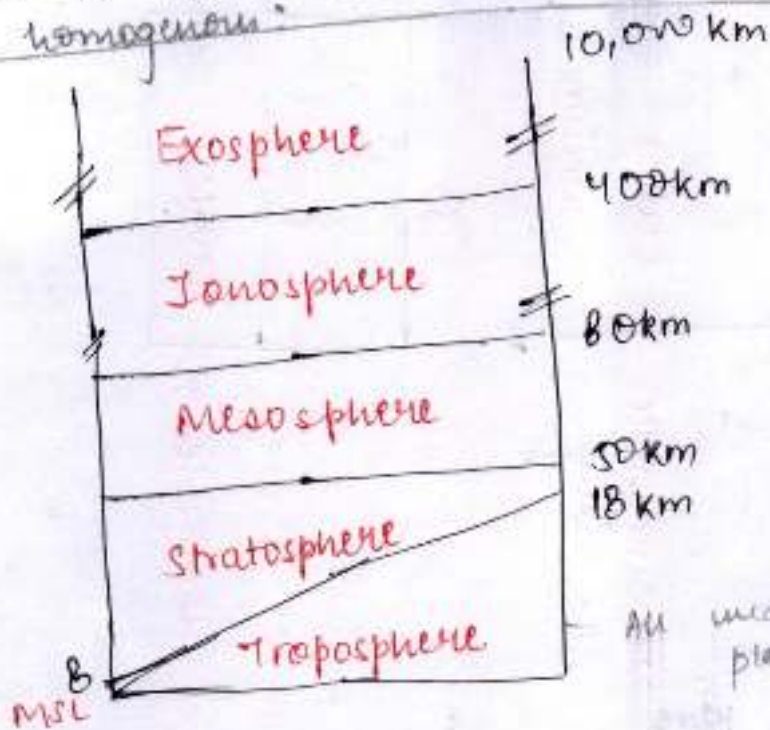 homogenous:
10,000 km
Exosphere
400km
Ionosphere
80km
Mesosphere
50km
18km
Stratosphere
Troposphere
All
8
MSL